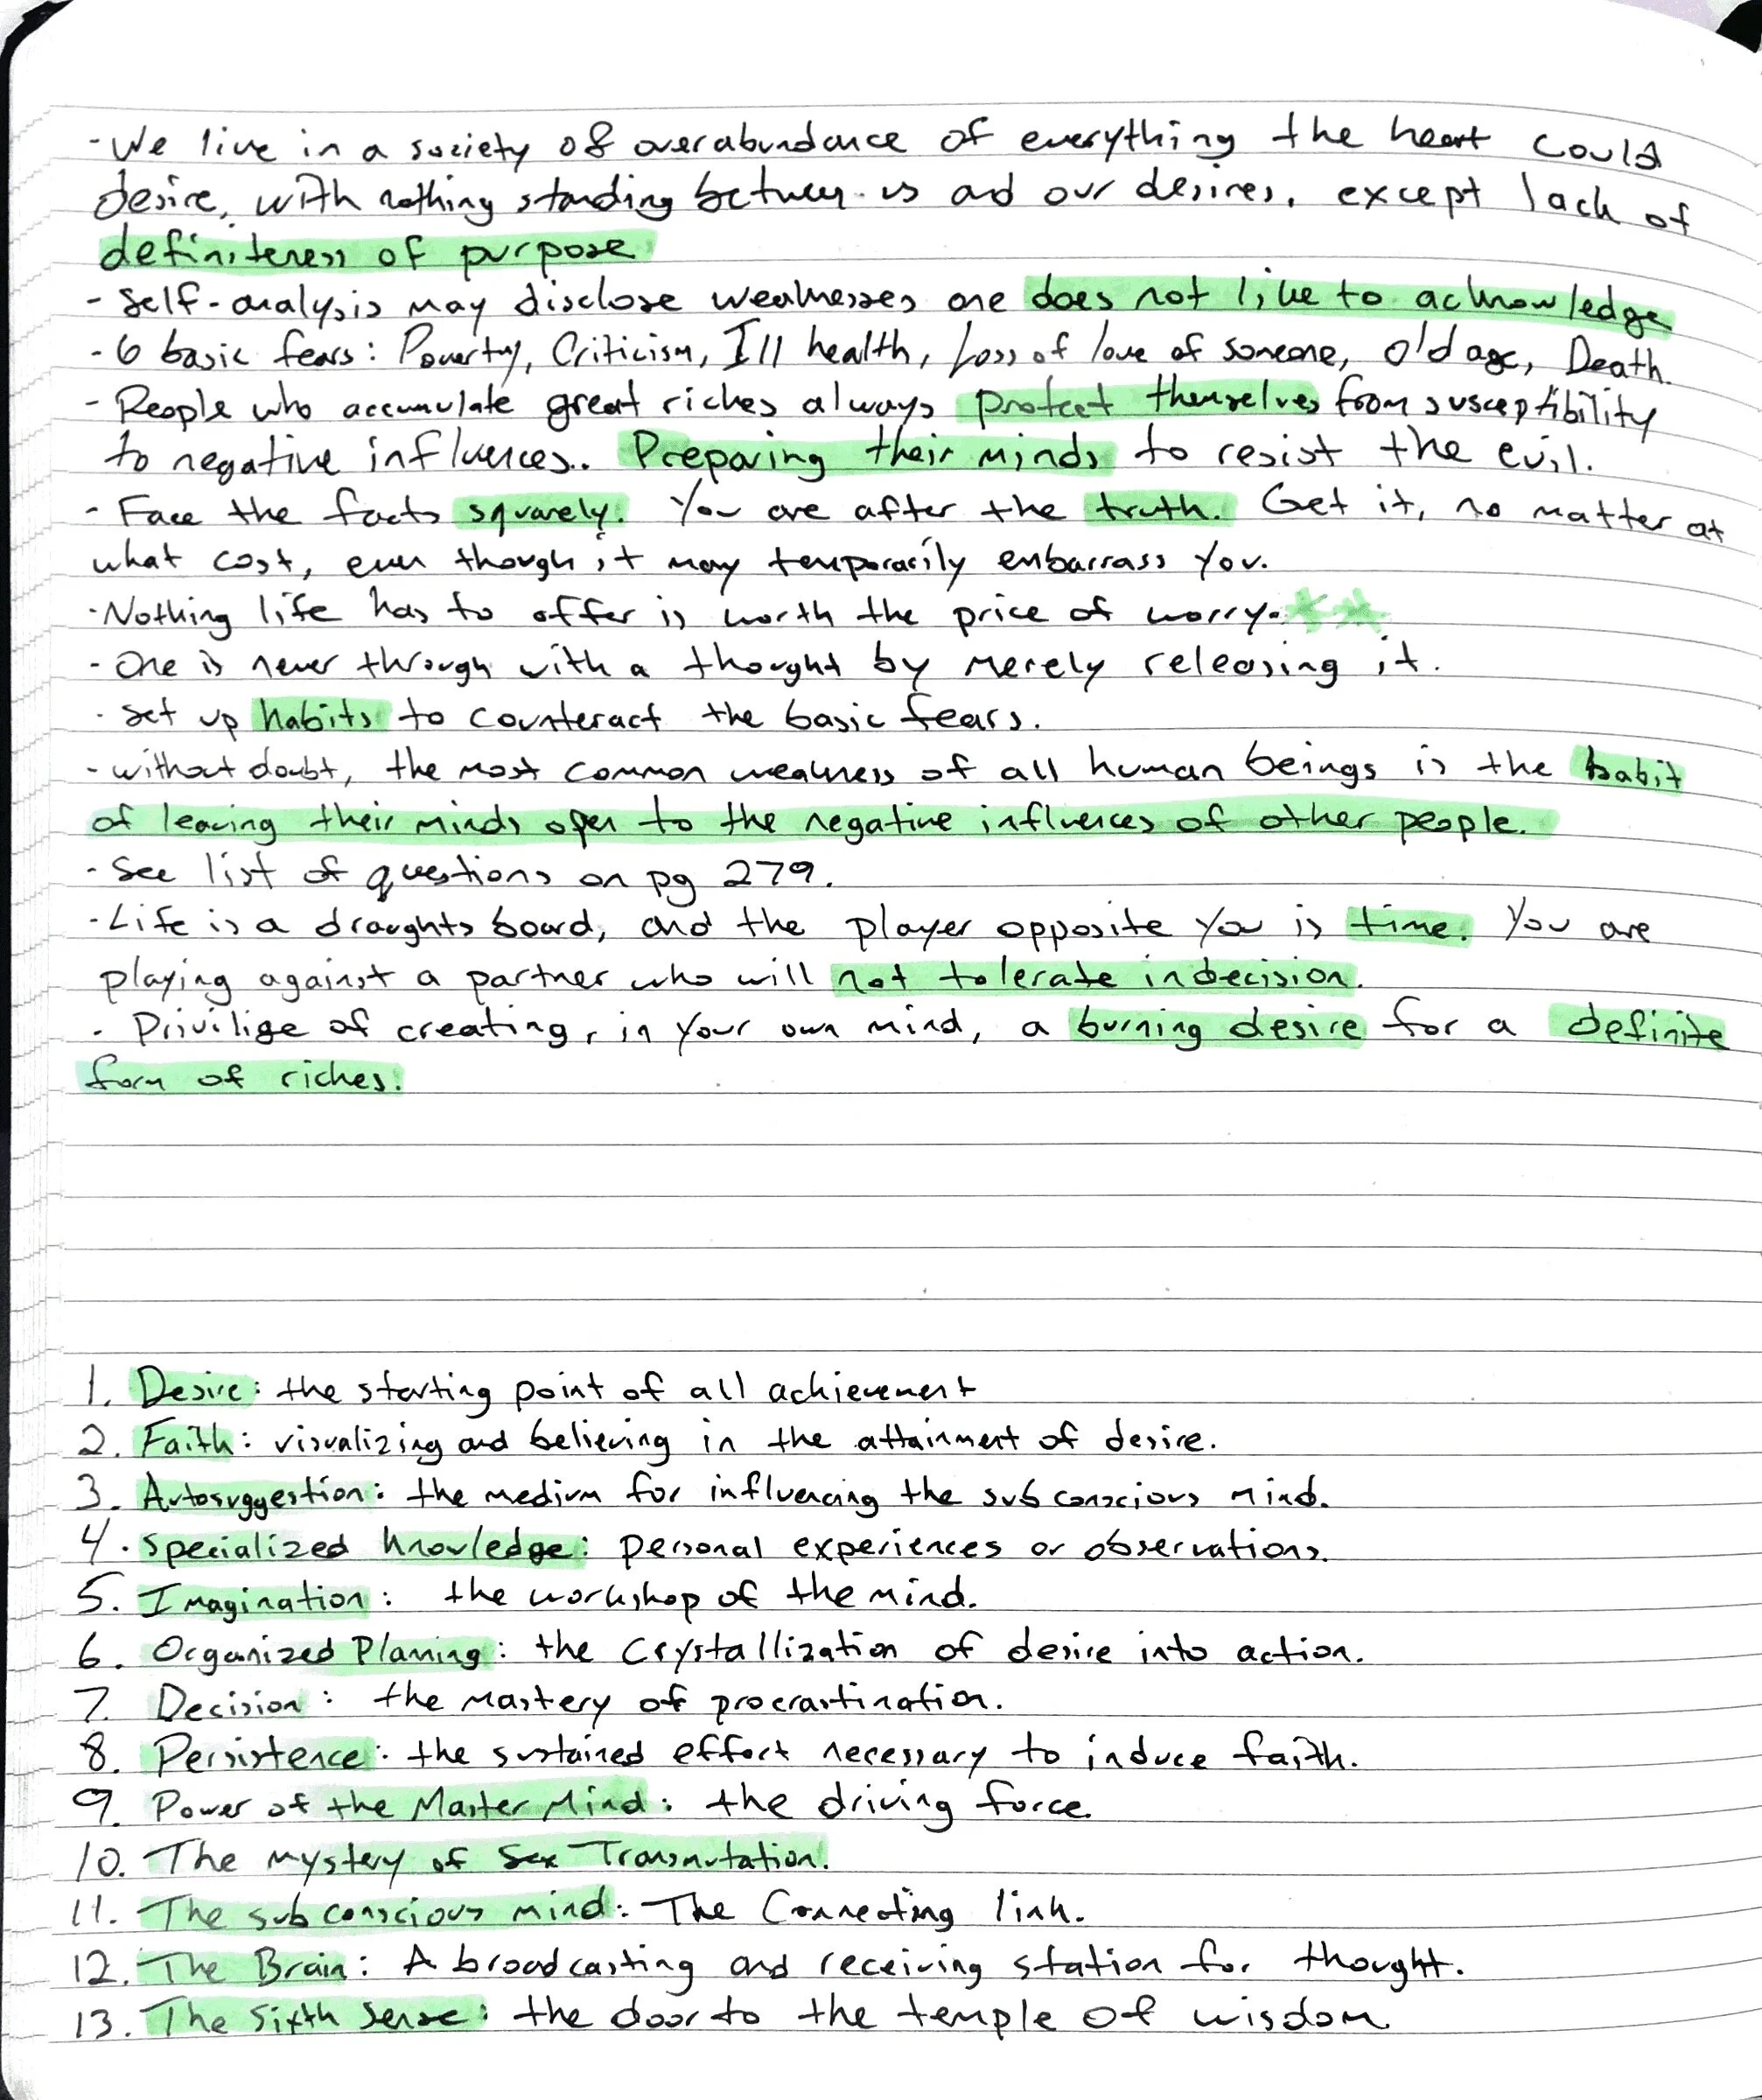 - We live in a society of overabundance of everything the heart could
desire, with nothing standing between us and our desires, except lack of
definiteness of purpose
- Self-analysis may disclose weaknesses one does not like to acknowledge
- 6 basic fears: Poverty, Criticism, Ill health, Loss of love of someone, old age, Death.
- People who accumulate great riches always protect themselves from susceptibility
to negative influences.. Preparing their minds to resist the evil.
- Face the facts squarely. You are after the truth. Get it, no matter at
what cost, even though it may temporarily embarrass you.
- Nothing life has to offer is worth the price of worry.
- One is never through with a thought by merely releasing it.
- Set up habits to counteract the basic fears.
- without doubt, the most common weakness of all human beings is the habit
of leaving their minds open to the negative influences of other people.
- See list of questions on pg 279.
- Life is a draughts board, and the player opposite you is time. You are
playing against a partner who will not tolerate indecision.
- Privilige of creating, in your own mind, a burning desire for a definite
form of riches.
1. Desire: the starting point of all achievement
2. Faith: visualizing and believing in the attainment of desire.
3. Autosuggestion: the medium for influencing the subconscious mind.
4. Specialized knowledge: personal experiences or observations.
5. Imagination: the workshop of the mind.
6. Organized Planning: the crystallization of desire into action.
7. Decision: the mastery of procrastination.
8. Persistence: the sustained effort necessary to induce faith.
9. Power of the Master Mind: the driving force.
10. The mystery of Sex Transmutation.
11. The subconscious mind: The Connecting link.
12. The Brain: A broadcasting and receiving station for thought.
13. The Sixth Sense: the door to the temple of wisdom